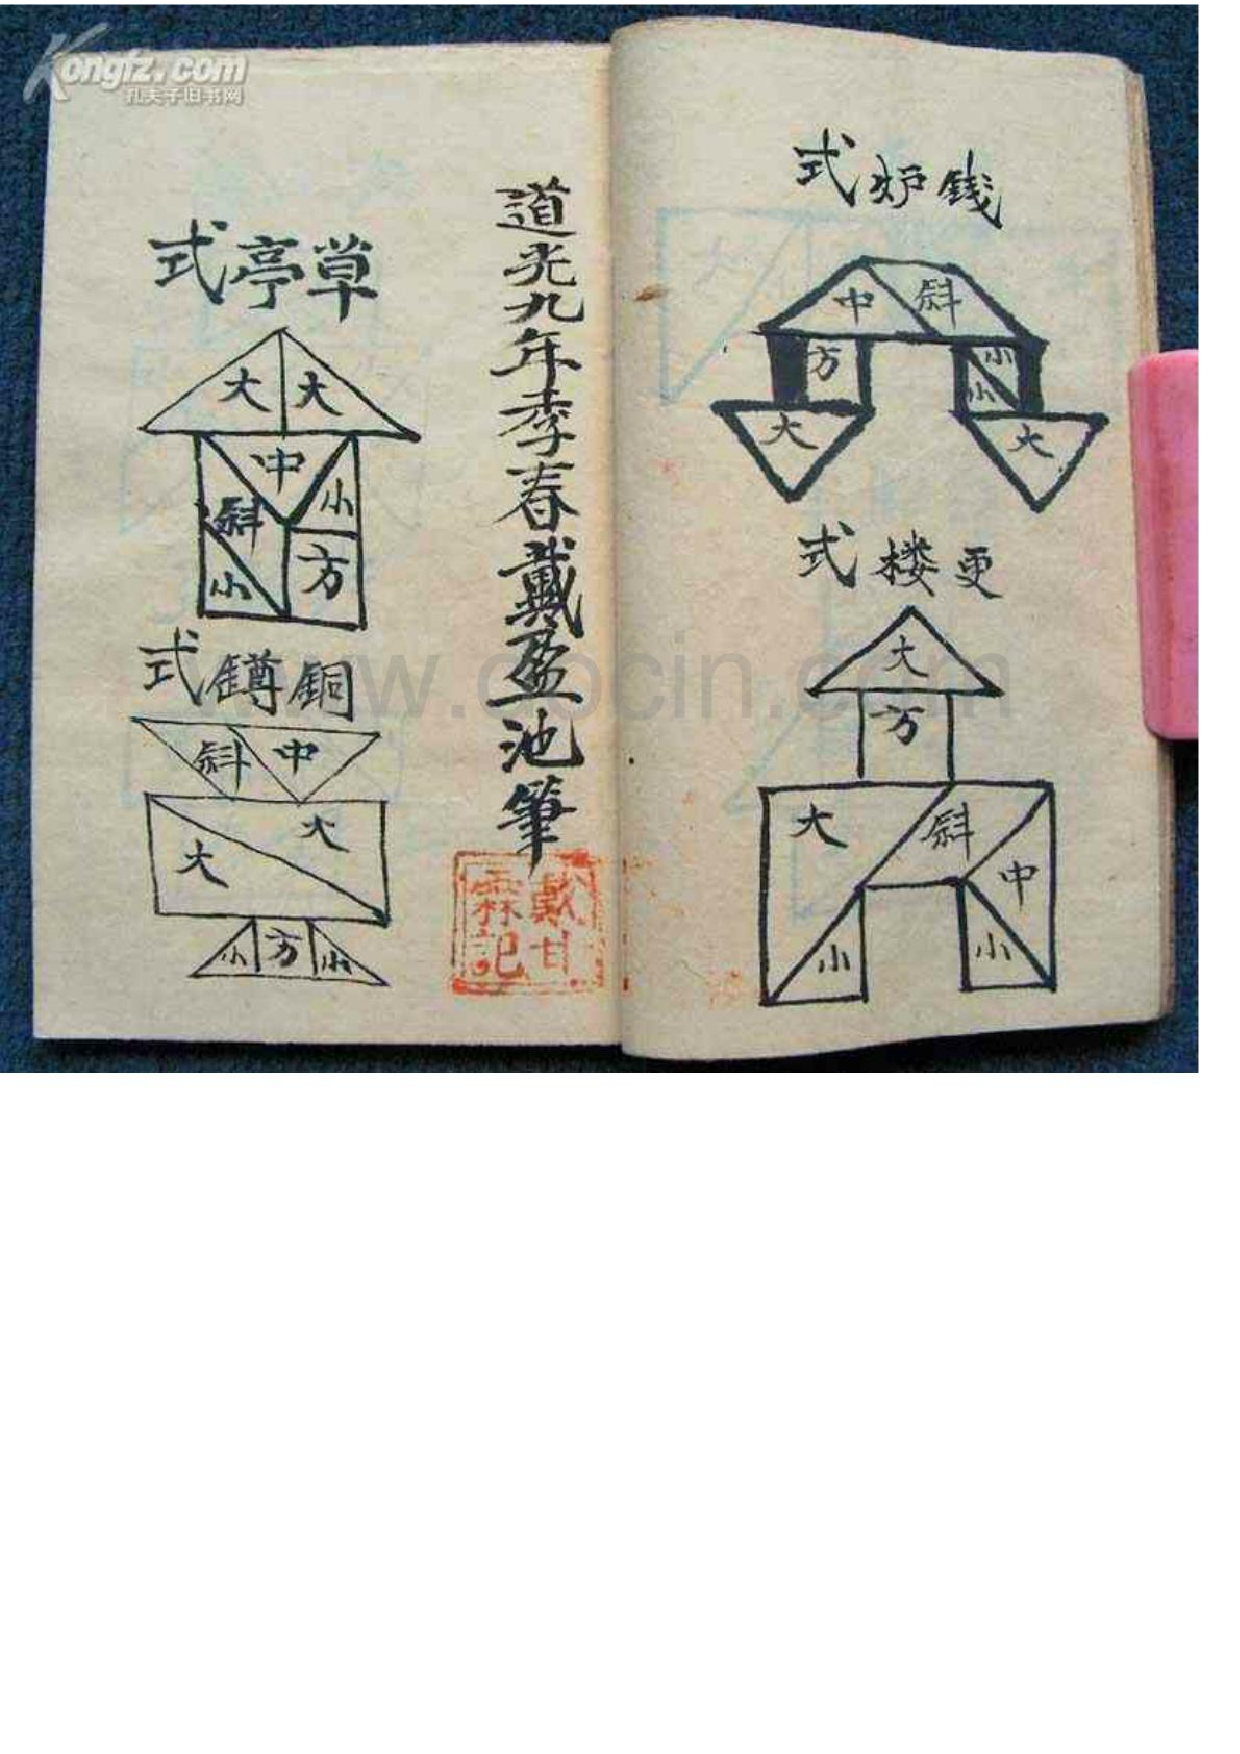 Kongfz.com
孔夫子旧书网
錢炉式
中
斜
方
小
小
大
大
更楼式
大
方
大
斜
中
小
小
道光九年季春戴盈池筆
戴甘霖記
草亭式
大
大
中
小
斜
小
方
銅鐏式
斜
中
大
大
小
方
小
www.docin.com